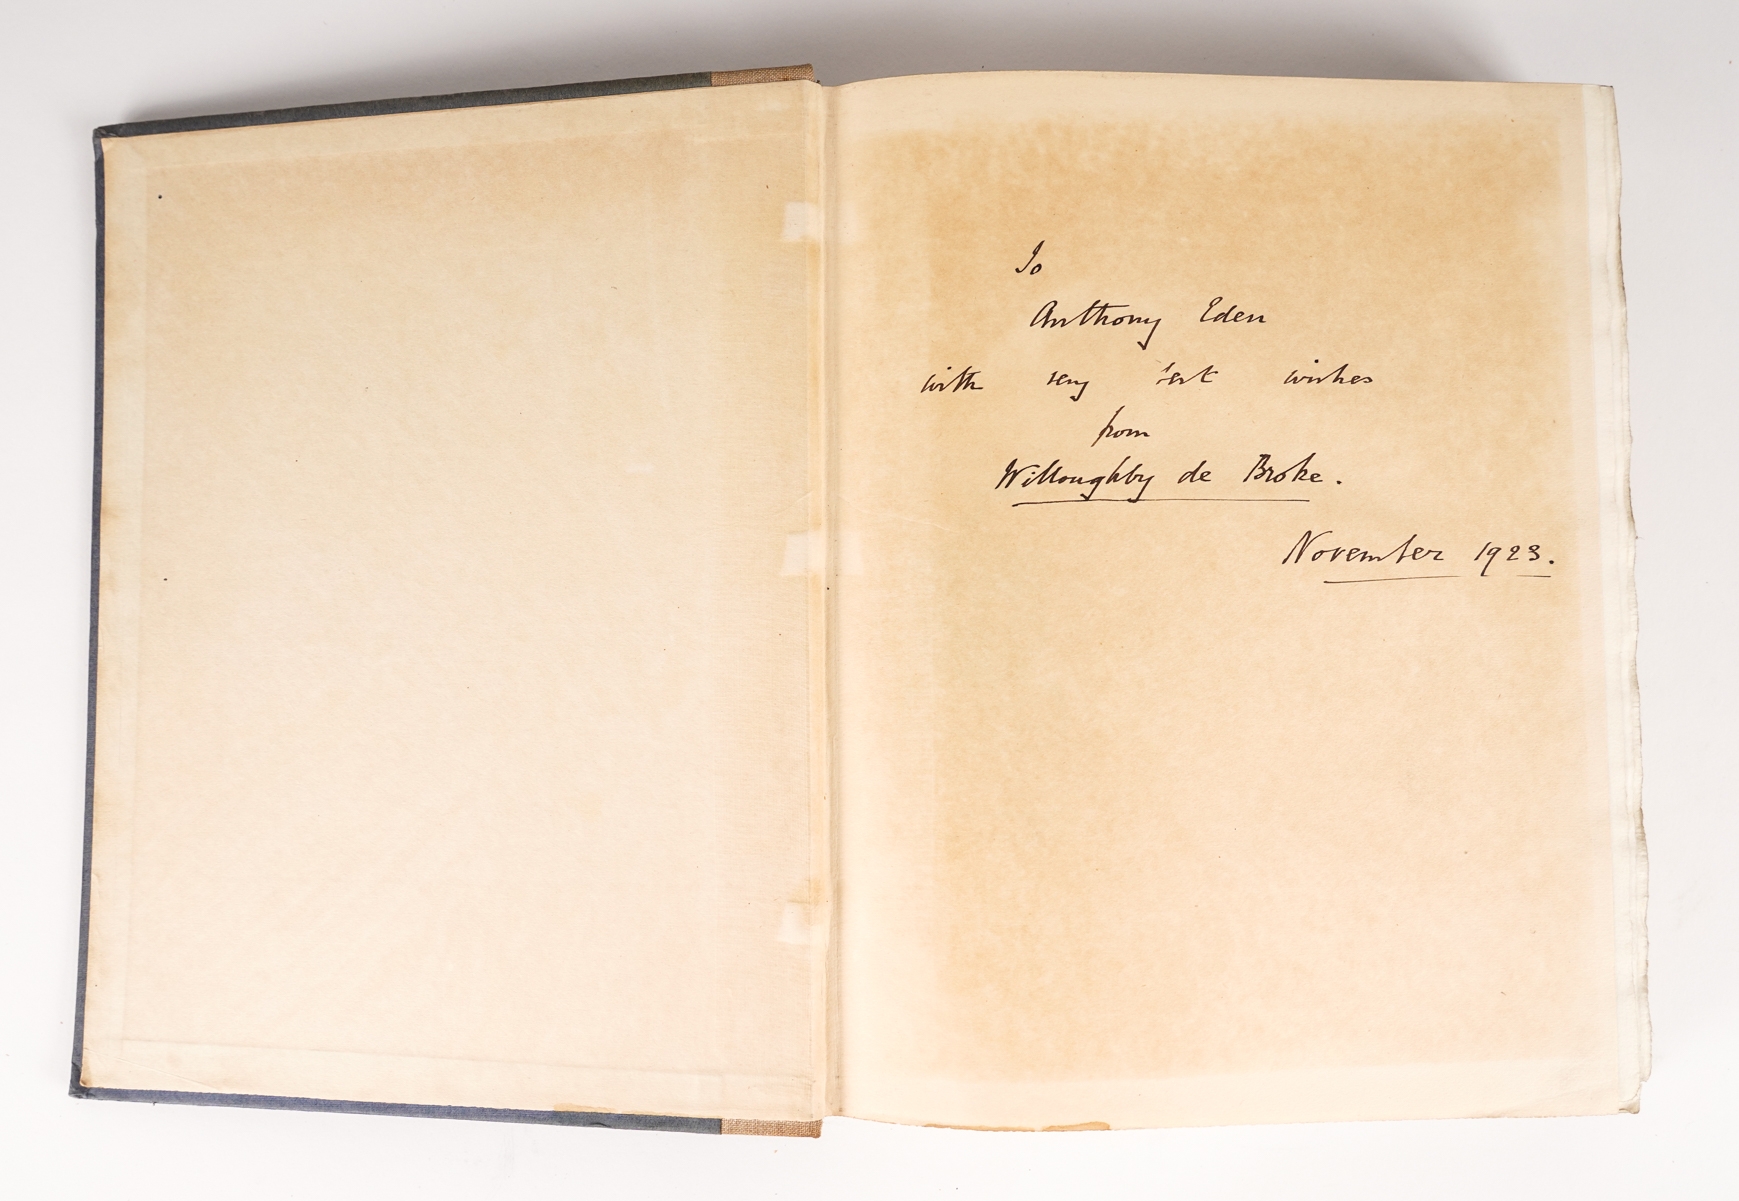 To
Anthony Eden
with very best wishes
from
Willoughby de Broke.
November 1923.